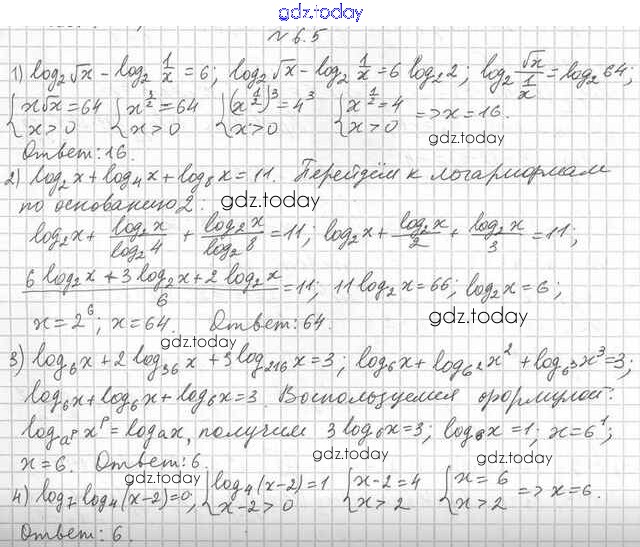 gdz.today
№ 6.5
1) log₂√x − log₂ 1/x = 6; log₂√x − log₂ 1/x = 6 log₂2; log₂ √x/(1/x) = log₂64;
{x√x = 64 {x^(3/2) = 64 {(x^(1/2))³ = 4³ {x^(1/2) = 4 => x = 16.
{x > 0 {x > 0 {x > 0 {x > 0
gdz.today
Ответ: 16.
2) log₂x + log₄x + log₈x = 11. Перейдём к логарифмам
по основанию 2: gdz.today
log₂x + log₂x/log₂4 + log₂x/log₂8 = 11; log₂x + log₂x/2 + log₂x/3 = 11;
(6 log₂x + 3 log₂x + 2 log₂x)/6 = 11; 11 log₂x = 66; log₂x = 6;
x = 2⁶; x = 64. Ответ: 64. gdz.today
gdz.today
3) log₆x + 2 log₃₆x + 3 log₂₁₆x = 3; log₆x + log₆²x² + log₆³x³ = 3;
log₆x + log₆x + log₆x = 3. Воспользуемся формулой:
log_(a^p) x^p = logₐx, получим 3 log₆x = 3; log₆x = 1; x = 6¹;
x = 6. Ответ: 6. gdz.today gdz.today
4) log₇log₄(x−2) = 0, {log₄(x−2) = 1 {x−2 = 4 {x = 6 => x = 6.
{x−2 > 0 {x > 2 {x > 2
Ответ: 6. gdz.today